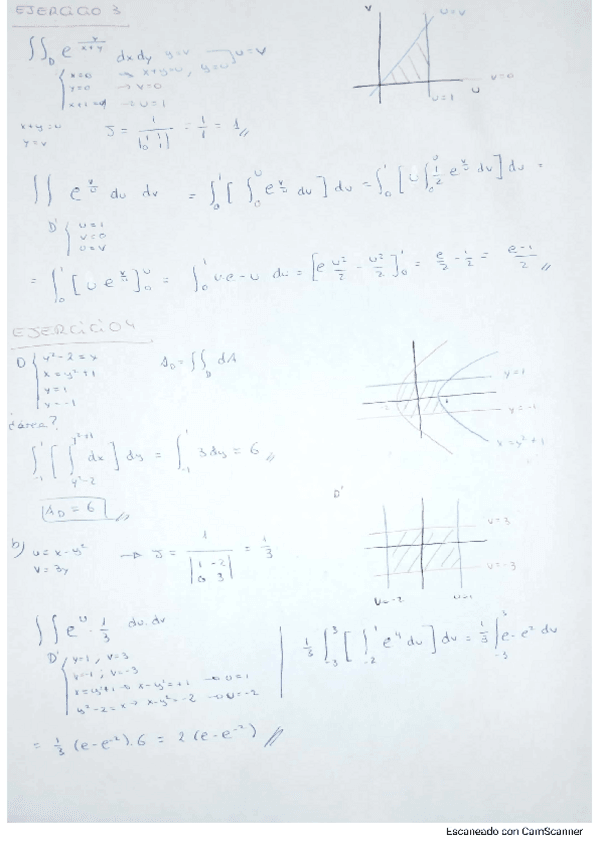 EJERCICIO 3
∬_D e^{y/(x+y)} dx dy y=v → u=v
x=0 → x+y=u, y=u
y=0 → v=0
x+y=u
y=v
J = 1/|1 1; 0 1| = 1/1 = 1
v
u=v
v=0
u
u=1
∬ e^{v/u} du dv = ∫_0^1 [∫_0^u e^{v/u} dv] du = ∫_0^1 [u ∫_0^u 1/u e^{v/u} dv] du =
D' { u=1
v=0
u=v
= ∫_0^1 [u e^{v/u}]_0^u = ∫_0^1 ue-u du = [e u²/2 - u²/2]_0^1 = e/2 - 1/2 = (e-1)/2 //
EJERCICIO 4
D { y²-2=x
x=y²+1
y=1
y=-1
A_D = ∬_D dA
y=1
y=-1
x=y²+1
¿área?
∫_{-1}^1 [∫_{y²-2}^{y²+1} dx] dy = ∫_{-1}^1 3dy = 6 //
A_D = 6 //
b) u=x-y²
v=3y
→ J = 1/|1 -2; 0 3| = 1/3
D'
v=3
v=-3
u=-2
u=1
∬ e^u · 1/3 du.dv
D' { y=1, v=3
y=-1, v=-3
x=y²+1 → x-y²=+1 → u=1
y²-2=x → x-y²=-2 → u=-2
1/3 ∫_{-3}^3 [∫_{-2}^1 e^u du] dv = 1/3 ∫_{-3}^3 e-e^{-2} dv
= 1/3 (e-e^{-2}).6 = 2(e-e^{-2}) //
Escaneado con CamScanner